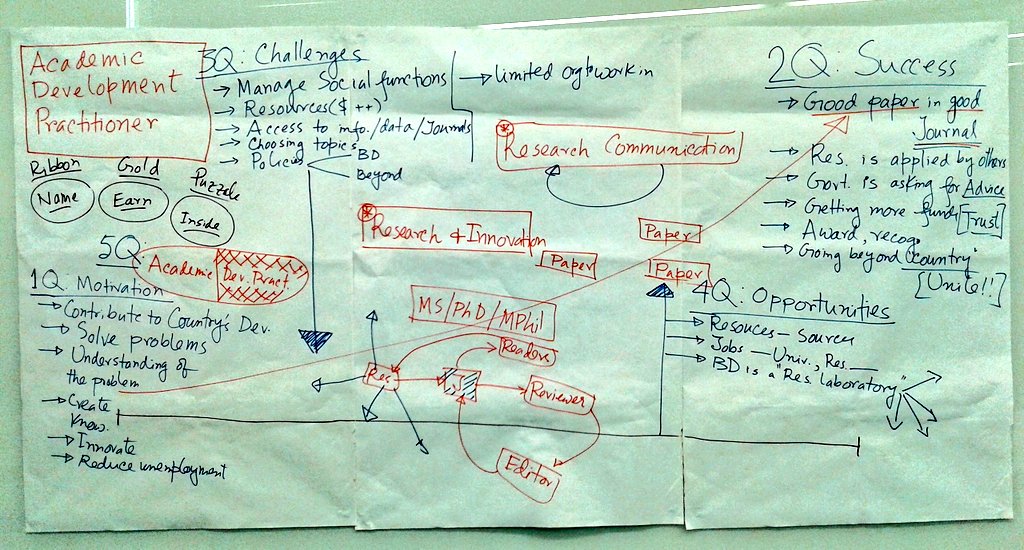 Academic
Development
Practitioner
Ribbon
Name
Gold
Earn
Puzzle
Inside
3Q: Challenges
→ Manage Social functions
→ Resources ($ ++)
→ Access to info./data/Journals
→ Choosing topics
→ Policies
BD
Beyond
→ limited org. work in
2Q: Success
→ Good paper in good
Journal
→ Res. is applied by others
→ Govt. is asking for Advice
→ Getting more funds [Trust]
→ Award, recog.
→ Going beyond country
[Unite!!]
* Research Communication
* Research & Innovation
Paper
Paper
Paper
5Q:
Academic Dev. Pract.
1Q: Motivation
→ Contribute to Country's Dev.
→ Solve problems
→ Understanding of
the problem
→ Create
Know.
→ Innovate
→ Reduce unemployment
MS/PhD/MPhil
Res.
Readers
Reviewer
Editor
4Q: Opportunities
→ Resouces - Sources
→ Jobs - Univ., Res.
→ BD is a "Res. laboratory"